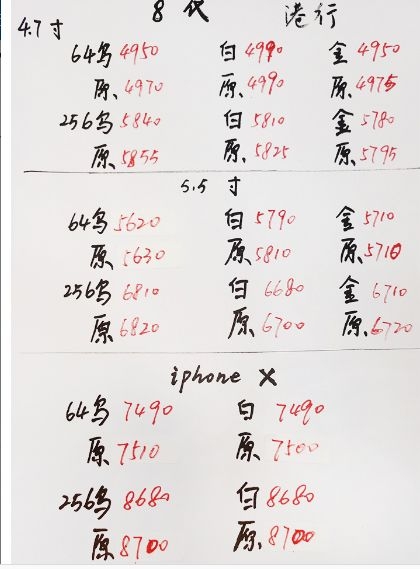 8代 港行
4.7寸
64乌4950 白4990 金4950
原.4970 原.4990 原.4975
256乌5840 白5810 金5780
原.5855 原.5825 原.5795
5.5寸
64乌5620 白5790 金5710
原.5630 原.5810 原.5710
256乌6810 白6680 金6710
原6820 原.6700 原.6720
iphone X
64乌7490 白7490
原.7510 原.7500
256乌8680 白8680
原.8700 原.8700